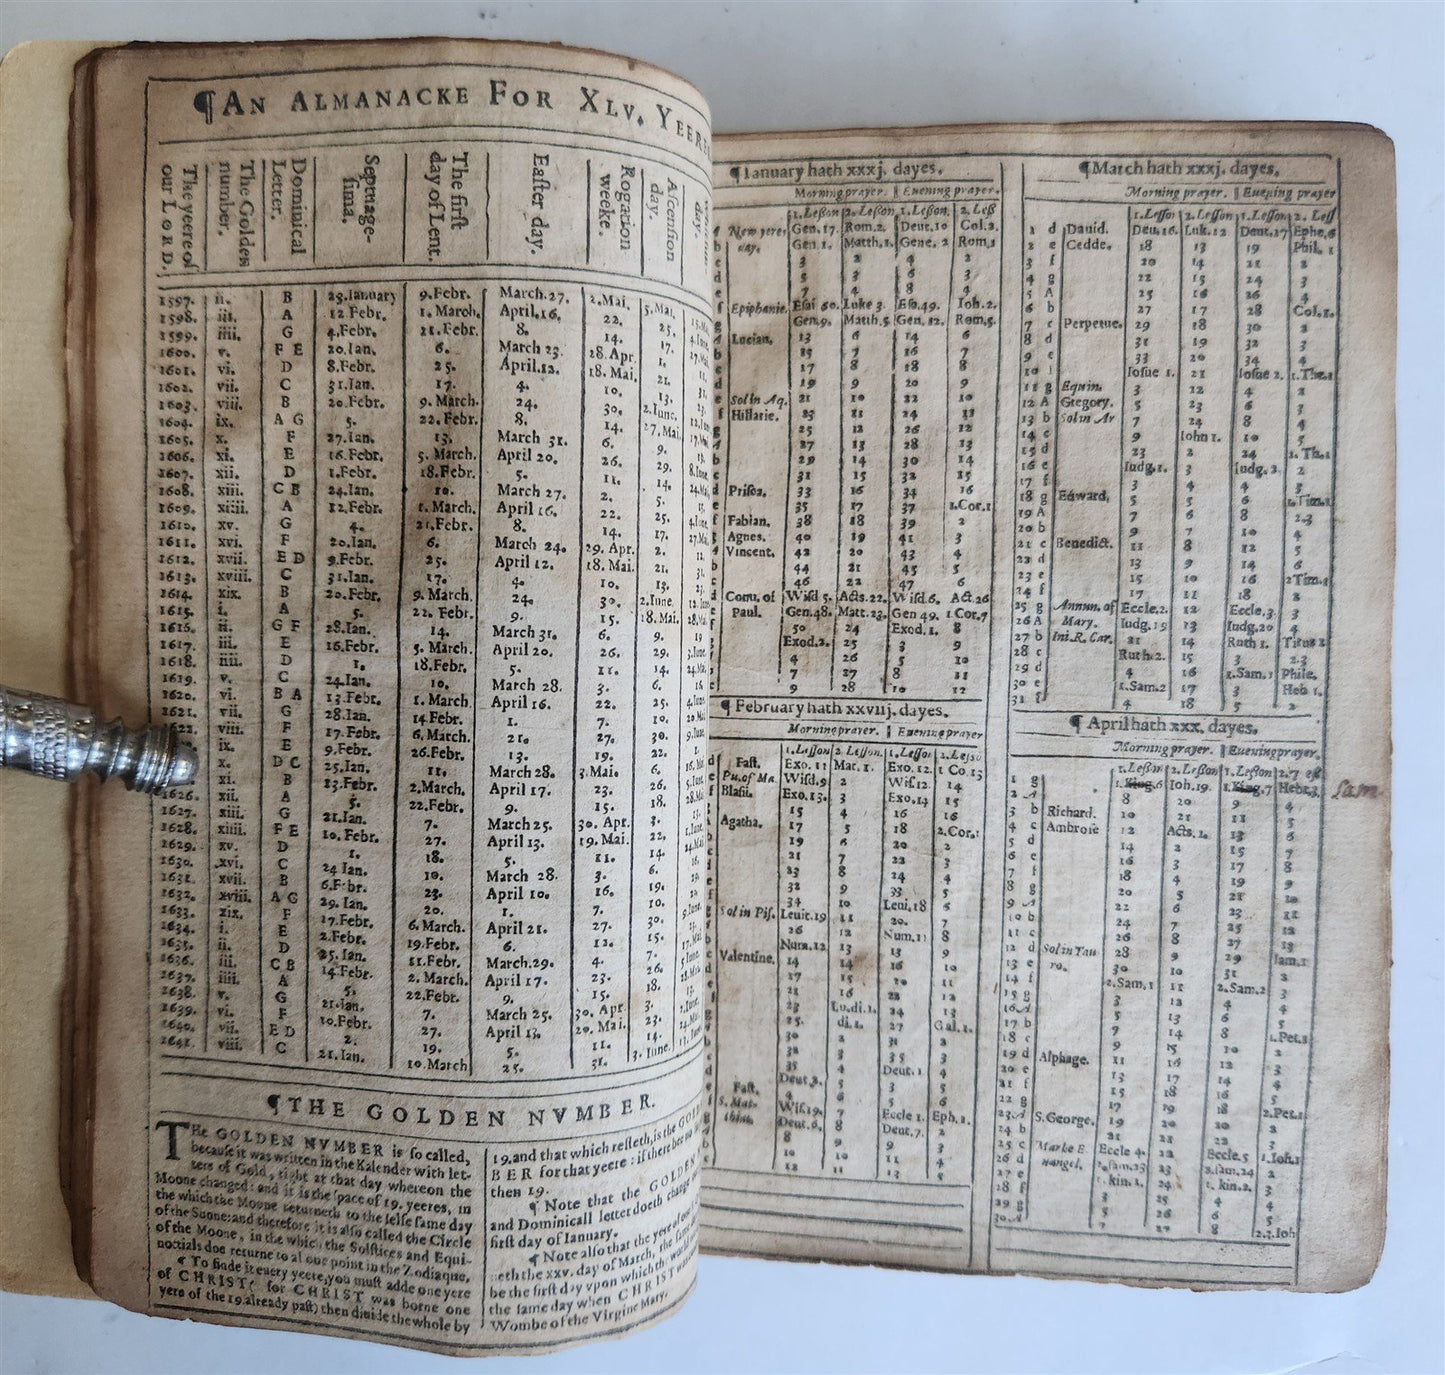 ¶AN ALMANACKE FOR XLV. YEERES
The yeere of our LORD.
The Golden number.
Dominical Letter.
Septuagesima.
The first day of Lent.
Easter day.
Rogation weeke.
Ascension day.
1597. ii. B 23.Ianuary 9.Febr. March.27. 2.Mai. 5.Mai.
1598. iii. A 12 Febr. 1. March. April.16. 22. 25.
1599. iiii. G 4.Febr. 21.Febr. 8. 14. 17.
1600. v. F E 20.Ian. 6. March 23. 28.Apr. 1.
1601. vi. D 8.Febr. 25. April.12. 18. Mai. 21.
1602. vii. C 31.Ian. 17. 4. 10. 13.
1603. viii. B 20.Febr. 9. March. 24. 30. 2.Iune.
1604. ix. A G 5. 22. Febr. 8. 14. 17.Mai.
1605. x. F 27.Ian. 13. March 31. 6. 9.
1606. xi. E 16.Febr. 5. March. April 20. 26. 29.
1607. xii. D 1.Febr. 18.Febr. 5. 11. 14.
1608. xiii. C B 24.Ian. 10. March 27. 2. 5.
1609. xiiii. A 12.Febr. 1. March. April 16. 22. 25.
1610. xv. G 4. 21.Febr. 8. 14. 17.
1611. xvi. F 20.Ian. 6. March 24. 29. Apr. 2.
1612. xvii. E D 9.Febr. 25. April 12. 18. Mai. 21.
1613. xviii. C 31.Ian. 17. 4. 10. 13.
1614. xix. B 20.Febr. 9. March. 24. 30. 2.Iune.
1615. i. A 5. 22. Febr. 9. 15. 18.Mai.
ii. G F 28.Ian. 14. March 31. 6. 9.
1617. iii. E 16.Febr. 5. March. April 20. 26. 29.
1618. iiii. D 1. 18.Febr. 5. 11. 14.
1619. v. C 24.Ian. 10. March 28. 3. 6.
1620. vi. B A 13.Febr. 1. March April 16. 22. 25.
1621. vii. G 28.Ian. 14 Febr. 1. 7. 10.
viii. F 17.Febr. 6. March. 21. 27. 30.
ix. E 9.Febr. 26.Febr. 13. 19. 22.
x. D C 25.Ian. 11. March 28. 3.Mai. 6.
xi. B 13.Febr. 2.March. April 17. 23. 26.
1626. xii. A 5. 22.Febr. 9. 15. 18.
1627. xiii. G 21.Ian. 7. March 25. 30. Apr. 3.
1628. xiiii. F E 10. Febr. 27. April 13. 19. Mai. 22.
1629. xv. D 1. 18. 5. 11. 14.
1630. xvi. C 24 Ian. 10. March 28. 3. 6.
1631. xvii. B 6.Febr. 23. April 10. 16. 19.
1632. xviii. A G 29. Ian. 20. 1. 7. 10.
1633. xix. F 17.Febr. 6. March. April 21. 27. 30.
1634. i. E 2.Febr. 19.Febr. 6. 12. 15.
1635. ii. D 25. Ian. 11.Febr. March.29. 4. 7.
1636. iii. C B 14.Febr. 2. March. April 17. 23. 26.
1637. iiii. A 5. 22.Febr. 9. 15. 18.
1638. v. G 21.Ian. 7. March 25. 30. Apr. 3.
1639. vi. F 10.Febr. 27. April 13. 20. Mai. 23.
1640. vii. E D 2. 19. 5. 11. 14.
1641. viii. C 21. Ian. 10 March 25. 31. 3. Iune.
¶THE GOLDEN NVMBER.
THe GOLDEN NVMBER is so called,
because it was written in the Kalender with let-
ters of Gold, right at that day whereon the
Moone changed: and it is the space of 19. yeeres, in
the which the Moone returneth to the selfe same day
of the Sunne: and therefore it is also called the Circle
of the Moone, in the which the Solstices and Equi-
noctials doe returne to al one point in the Zodiaque.
¶ To finde it euery yeere, you must adde one yere
of CHRIST( for CHRIST was borne one
yere of the 19.already past) then diuide the whole by
19.and that which resteth,is the GOLD
BER for that yeere : if there bee no
then 19.
¶ Note that the GOLDEN
and Dominicall letter doeth change
first day of Ianuary.
¶ Note also that the yere of our
neth the xxv. day of March, the same
be the first day vpon which the world
the same day when CHRIST was
Wombe of the Virgine Mary.
¶Ianuary hath xxxj. dayes.
Morning prayer. ¶ Euening prayer.
1.Lesson 2.Lesson. 1.Lesson. 2.Less
New yeres day. Gen.17. Rom.2. Deut.10 Col.2.
Gen.1. Matth.1. Gene. 2 Rom.1
3 2 4 2
5 3 6 3
7 4 8 4
Epiphanie. Esai 60. Luke 3. Esa.49. Ioh.2.
Gen.9. Matth.5. Gen.12. Rom.5.
Lucian. 13 6 14 6
15 7 16 7
17 8 18 8
19 9 20 9
Sol in Aq. 21 10 22 10
Hillarie. 23 11 24 11
25 12 26 12
27 13 28 13
29 14 30 14
31 15 32 15
Prisca. 33 16 34 16
35 17 37 1.Cor.1
Fabian. 38 18 39 2
Agnes. 40 19 41 3
Vincent. 42 20 43 4
44 21 45 5
46 22 47 6
Conu. of Paul. Wisd 5. Acts.22. Wisd.6. Act.26
Gen.48. Matt.23. Gen 49. 1 Cor.7
50 24 Exod.1. 8
Exod.2. 25 3 9
4 26 5 10
7 27 8 11
9 28 10 12
¶ February hath xxviij. dayes.
Morning prayer. ¶ Euening prayer
1.Lesson 2 Lesson. 1.Lesson 2.Lesso
Fast. Exo. 11 Mar. 1. Exo. 12. 1 Co.13
Pu.of Ma. Wisd.9 2 Wis.12 14
Blasii. Exo.13. 3 Exo.14 15
15 4 16 16
Agatha. 17 5 18 2.Cor.1
19 6 20 2
21 7 22 3
23 8 24 4
32 9 33 5
34 10 Leui.18 6
Sol in Pis. Leuit.19 11 20. 7
26 12 Num.11 8
Num.12. 13 13 9
Valentine. 14 14 16 10
17 15 20 11
21 16 22 12
23 Lu.di.1. 24 13
25. di.1. 27 Gal.1.
30 2 31 2
32 3 35 3
35 4 Deut.1 4
Deut.2. 5 3 5
Fast. 4 6 5 6
S. Mat-thias. Wis.19. 7 Eccle 1. Eph.1.
Deut.6. 8 Deut.7. 2
8 9 9 3
10 10 11 4
12 11 13 5
¶March hath xxxj. dayes.
Morning prayer. ¶ Euening prayer
1.Lesso 2. Lesson 1.Lesson 2. Less
1 d Dauid. Deu.16. Luk.12 Deut.17 Ephe.6
2 e Cedde. 18 13 19 Phil. 1
3 f 20 14 21 2
4 g 22 15 24 3
5 A 25 16 26 4
6 b 27 17 28 Col.1.
7 c Perpetue. 29 18 30 2
8 d 31 19 32 3
9 e 33 20 34 4
10 f Iosue 1. 21 Iosue 2. 1.The.1
11 g Equin. 3 22 4 2
12 A Gregory. 5 23 6 3
13 b Sol in Ar 7 24 8 4
14 c 9 Iohn 1. 10 5
15 d 23 2 24 2. Th.1
16 e Iudg.1. 3 Iudg.2. 2
17 f 3 4 4 3
18 g Edward. 5 5 6 1.Tim.1
19 A 7 6 8 2.3
20 b 9 7 10 4
21 c Benedict. 11 8 12 5
22 d 13 9 14 6
23 e 15 10 16 2Tim.1
24 f 17 11 18 2
25 g Annun. of Mary. Eccle.2. 12 Eccle.3 3
26 A Iudg.19 13 Iudg.20 4
27 b Ini.R. Car. 21 14 Ruth 1. Titus 1
28 c Ruth.2. 15 3 2.3
29 d 4 16 1.Sam.1 Phile.
30 e 1.Sam.2 17 3 Heb 1.
31 f 4 18 5 2
¶ April hath xxx. dayes.
Morning prayer. ¶ Euening prayer.
1.Lesson 2.Lesson 1.Lesson
1 g 1.King.6 Ioh.19. 1.King.7 Hebr.3. Sam
2 A 8 20 9 4
3 b Richard. 10 21 11 5
4 c Ambrose 12 Acts.1. 13 6
5 d 14 2 15 7
6 e 16 3 17 8
7 f 18 4 19 9
8 g 20 5 21 10
9 A 22 6 23 11
10 b 24 7 25 12
11 c 26 8 27 13
12 d Sol in Tauro. 28 9 29 Iam.1
13 e 30 10 31 2
14 f 2.Sam.1 11 2.Sam.2 3
15 g 3 12 4 4
16 A 5 13 6 5
17 b 7 14 8 1.Pet.1
18 c 9 15 10 2
19 d Alphage. 11 16 12 3
20 e 13 17 14 4
21 f 15 18 16 5
22 g 17 19 18 2.Pet.1
23 A S.George. 19 20 20 2
24 b 21 21 22 3
25 c Marke Euangel. Eccle 4. 22 Eccle.5 1.Ioh.1
26 d 2.sam.23 23 2.sam.24 2
27 e 1.kin.1. 24 1.kin.2. 3
28 f 3 25 4 4
29 g 5 26 6 5
30 A 7 27 8 2.3.Ioh